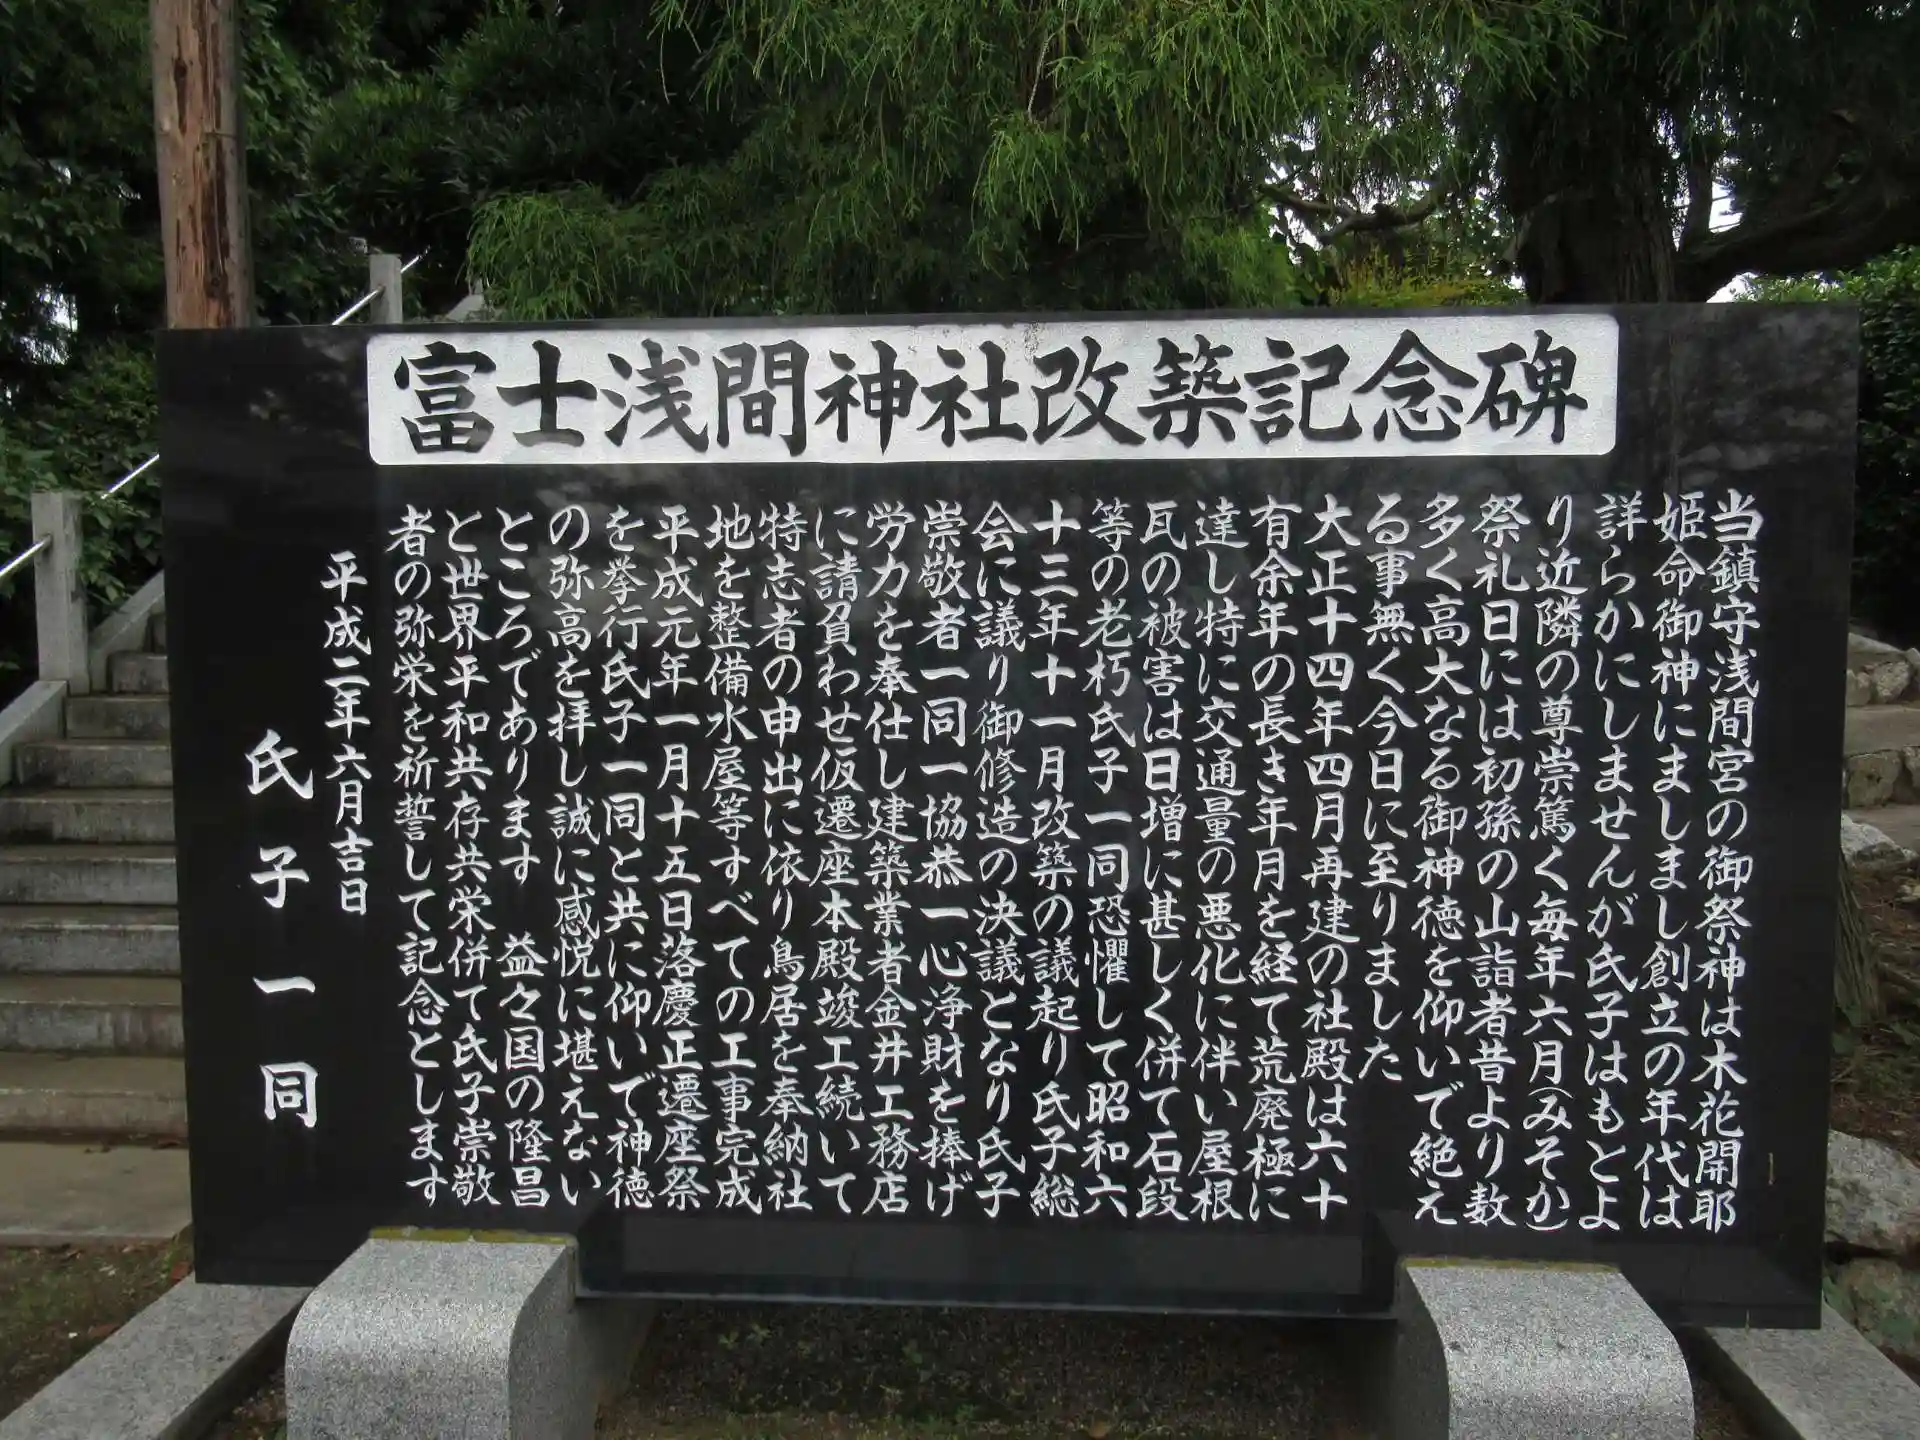 富士浅間神社改築記念碑
当鎮守浅間宮の御祭神は木花開耶
姫命御神にましまし創立の年代は
詳らかにしませんが氏子はもとよ
り近隣の尊崇篤く毎年六月(みそか)
祭礼日には初孫の山詣者昔より数
多く高大なる御神徳を仰いで絶え
る事無く今日に至りました
大正十四年四月再建の社殿は六十
有余年の長き年月を経て荒廃極に
達し特に交通量の悪化に伴い屋根
瓦の被害は日増に甚しく併て石段
等の老朽氏子一同恐懼して昭和六
十三年十一月改築の議起り氏子総
会に議り御修造の決議となり氏子
崇敬者一同一協恭一心浄財を捧げ
労力を奉仕し建築業者金井工務店
に請負わせ仮遷座本殿竣工続いて
特志者の申出に依り鳥居を奉納社
地を整備水屋等すべての工事完成
平成元年一月十五日落慶正遷座祭
を挙行氏子一同と共に仰いで神徳
の弥高を拝し誠に感悦に堪えない
ところであります　益々国の隆昌
と世界平和共存共栄併て氏子崇敬
者の弥栄を祈誓して記念とします
平成二年六月吉日
氏子一同